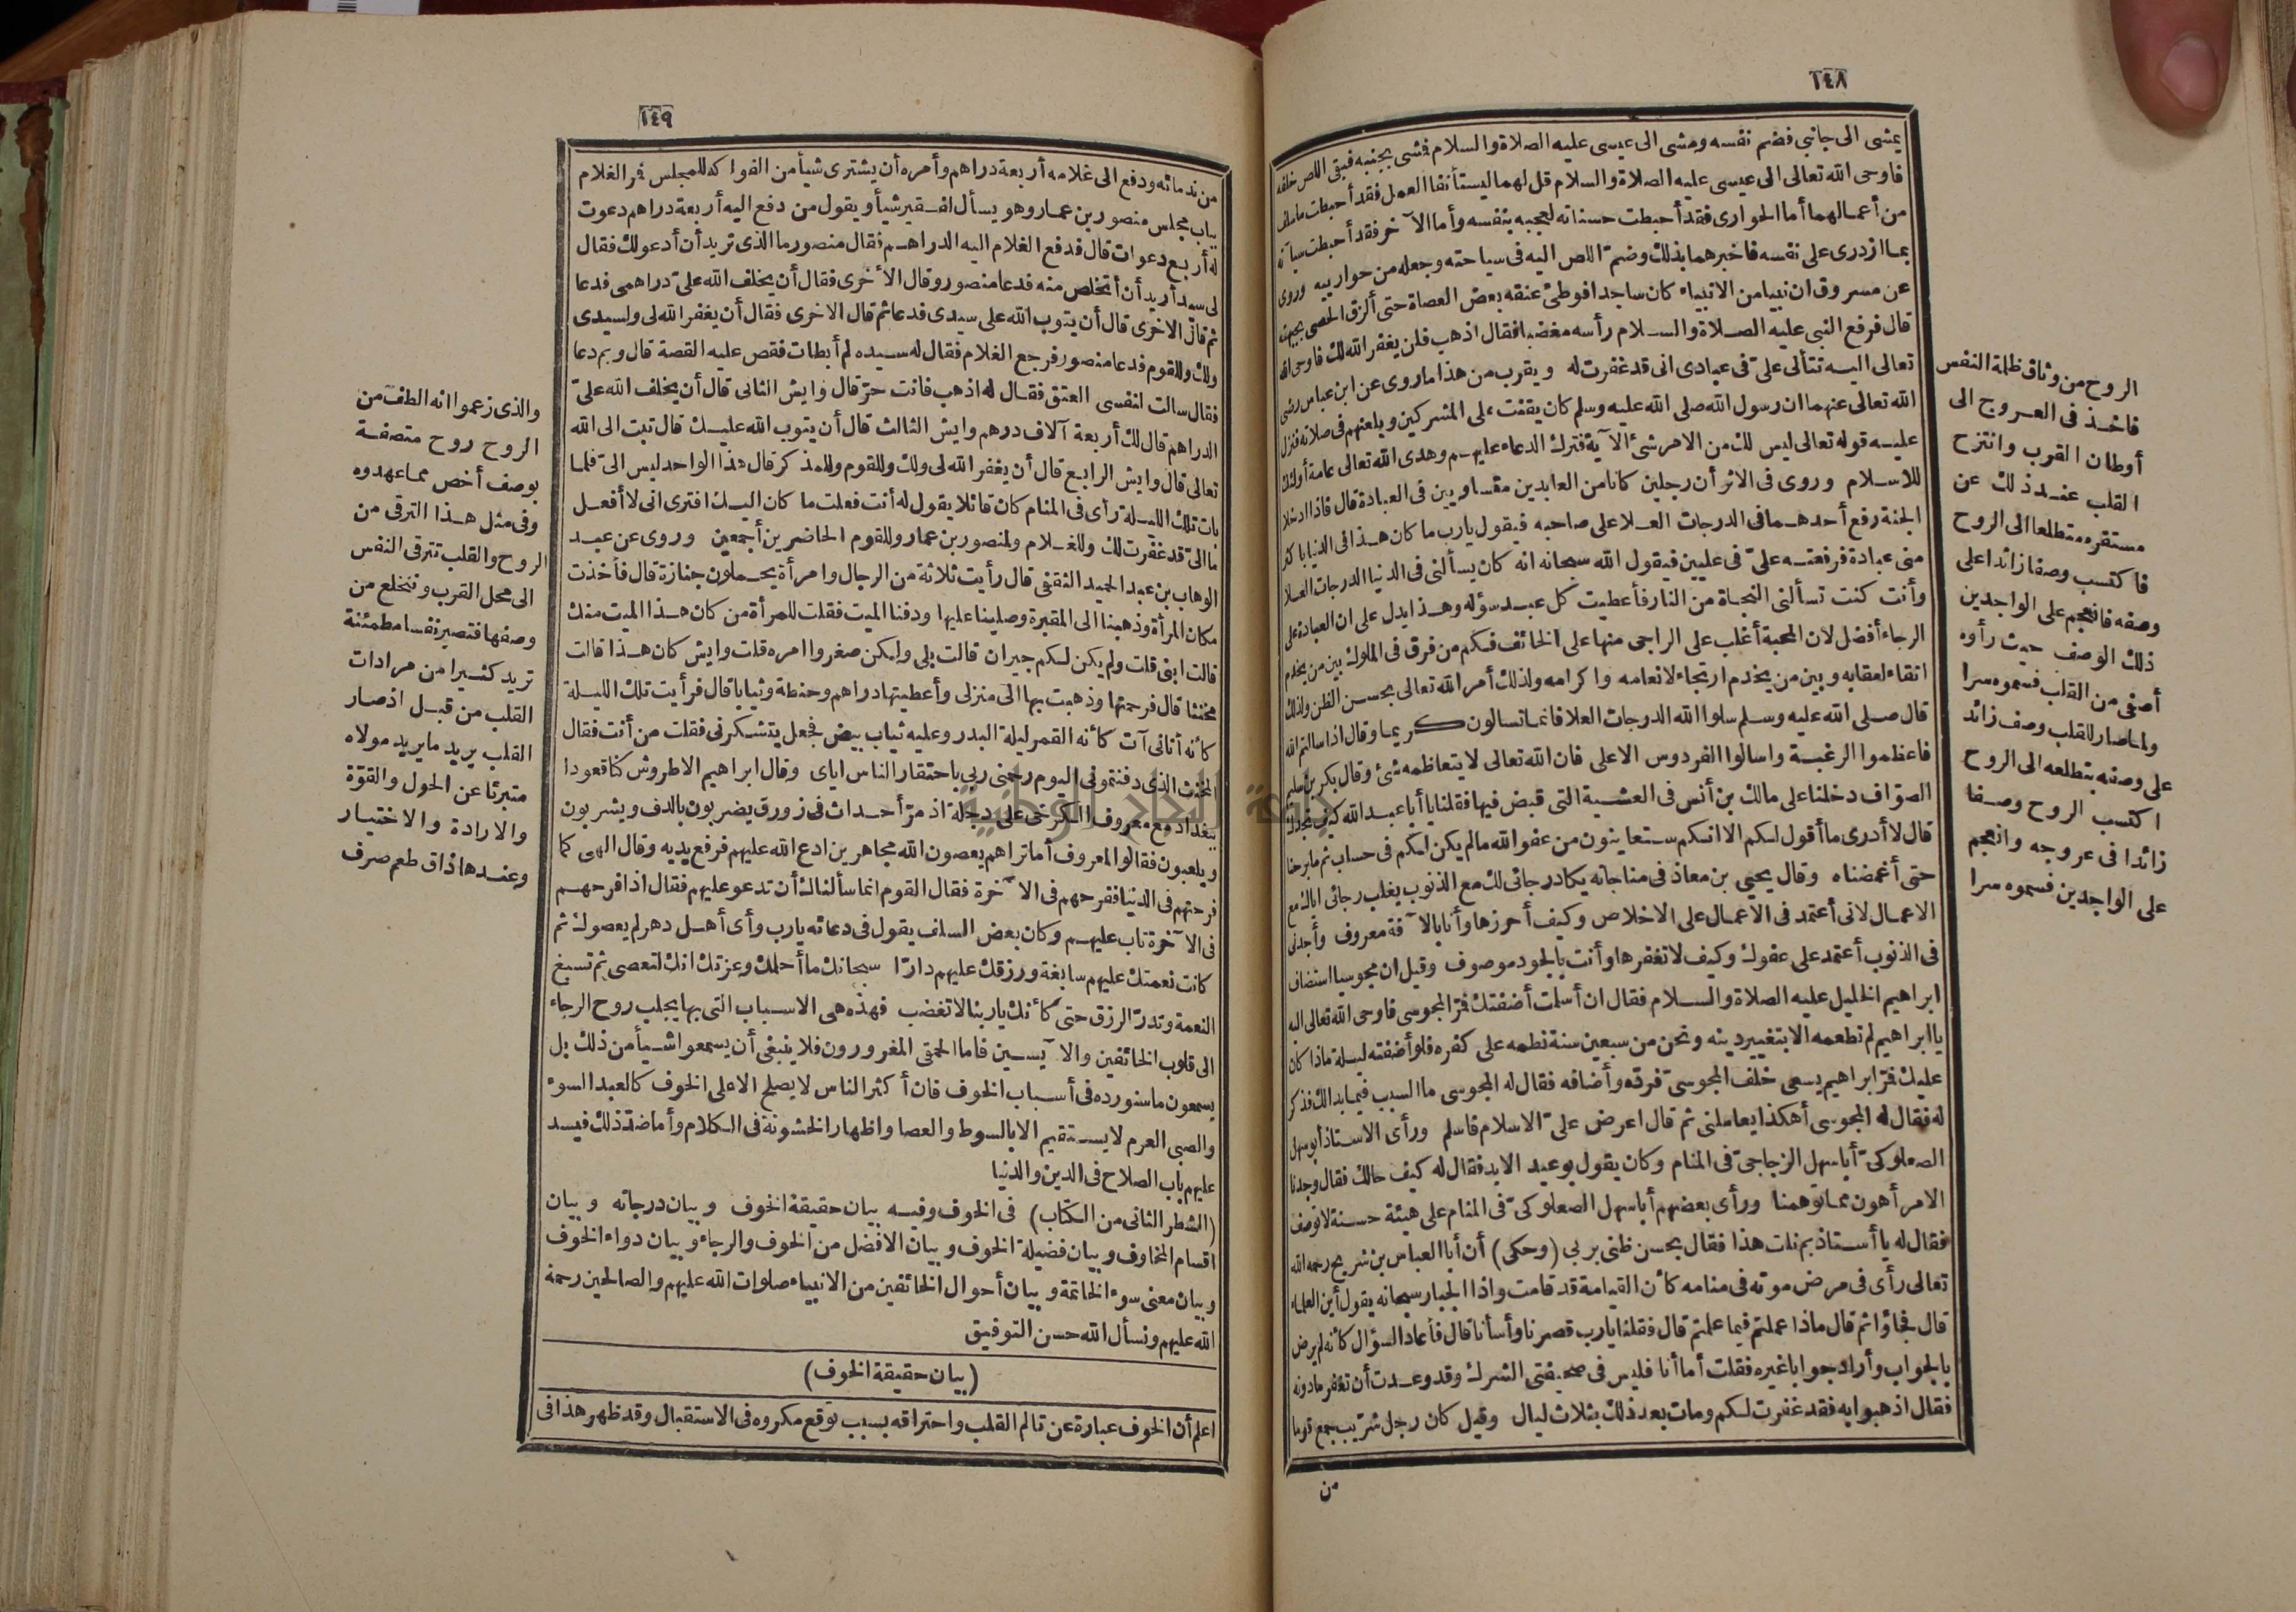 ١٤٨
يمشى الى جانبى فضم نفسه ومشى الى عيسى عليه الصلاة والسلام فمشى بجنبه فبقى اللص خلفه
فاوحى الله تعالى الى عيسى عليه الصلاة والسلام قل لهما ليستأنفا العمل فقد أحبطت ما سلف
من أعمالهما أما الحوارى فقد أحبطت حسناته لعجبه بنفسه وأما الآخر فقد أحبطت سيآته
بما ازدرى على نفسه فاخبرهما بذلك وضم اللص اليه فى سياحته وجعله من حوارييه وروى
عن مسروق ان نبيا من الانبياء كان ساجدا فوطئ عنقه بعض العصاة حتى ألزق الحصى بجبهته
قال فرفع النبى عليه الصلاة والسلام رأسه مغضبا فقال اذهب فلن يغفر الله لك فاوحى الله
تعالى اليه تتألى علىّ فى عبادى انى قد غفرت له ويقرب من هذا ما روى عن ابن عباس رضى
الله تعالى عنهما ان رسول الله صلى الله عليه وسلم كان يقنت على المشركين ويلعنهم فى صلاته فنزل
عليه قوله تعالى ليس لك من الامر شئ الآية فترك الدعاء عليهم وهدى الله تعالى عامة أولئك
للاسلام وروى فى الاثر أن رجلين كانا من العابدين متساويين فى العبادة قال فاذا ادخلا
الجنة رفع أحدهما فى الدرجات العلا على صاحبه فيقول يارب ما كان هذا فى الدنيا باكثر
منى عبادة فرفعته علىّ فى عليين فيقول الله سبحانه انه كان يسألنى فى الدنيا الدرجات العلا
وأنت كنت تسألنى النجاة من النار فأعطيت كل عبد سؤله وهذا يدل على ان العبادة على
الرجاء أفضل لان المحبة أغلب على الراجى منها على الخائف فكم من فرق فى الملوك بين من يخدم
اتقاء لعقابه وبين من يخدم ارتجاء لانعامه واكرامه ولذلك أمر الله تعالى بحسن الظن ولذلك
قال صلى الله عليه وسلم سلوا الله الدرجات العلا فانما تسالون كريما وقال اذا سالتم الله
فاعظموا الرغبة واسالوا الفردوس الاعلى فان الله تعالى لا يتعاظمه شئ وقال بكر بن سليم
الصوّاف دخلنا على مالك بن أنس فى العشية التى قبض فيها فقلنا يا أبا عبد الله كيف تجدك
قال لا أدرى ما أقول لكم الا انكم ستعاينون من عفو الله مالم يكن لكم فى حساب ثم ما برحنا
حتى أغمضناه وقال يحيى بن معاذ فى مناجاته يكاد رجائى لك مع الذنوب يغلب رجائى اياك مع
الاعمال لانى أعتمد فى الاعمال على الاخلاص وكيف أحرزها وأنا بالآفة معروف وأجدنى
فى الذنوب أعتمد على عفوك وكيف لا تغفرها وأنت بالجود موصوف وقيل ان مجوسيا استضاف
ابراهيم الخليل عليه الصلاة والسلام فقال ان أسلمت أضفتك فمرّ المجوسى فاوحى الله تعالى اليه
يا ابراهيم لم تطعمه الا بتغيير دينه ونحن من سبعين سنة نطعمه على كفره فلو أضفته ليلة ماذا كان
عليك فمرّ ابراهيم يسعى خلف المجوسىّ فردّه وأضافه فقال له المجوسى ما السبب فيما بدا لك فذكر
له فقال له المجوسى أهكذا يعاملنى ثم قال اعرض علىّ الاسلام فاسلم ورأى الاستاذ أبو سهل
الصعلوكىّ أبا سهل الزجاجىّ فى المنام وكان يقول بوعيد الابد فقال له كيف حالك فقال وجدنا
الامر أهون مما توهمنا ورأى بعضهم أبا سهل الصعلوكىّ فى المنام على هيئة حسنة لا توصف
فقال له يا أستاذ بم نلت هذا فقال بحسن ظنى بربى (وحكى) أن أبا العباس بن سريج رحمه الله
تعالى رأى فى مرض موته فى منامه كأن القيامة قد قامت واذا الجبار سبحانه يقول أين العلماء
قال فجاؤا ثم قال ماذا عملتم فيما علمتم قال فقلنا يارب قصرنا وأسأنا قال فأعاد السؤال كأنه لم يرض
بالجواب وأراد جوابا غيره فقلت أما أنا فليس فى صحيفتى الشرك وقد وعدت أن تغفر ما دونه
فقال اذهبوا به فقد غفرت لكم ومات بعد ذلك بثلاث ليال وقيل كان رجل شرّيب جمع قوما
من
الروح من وثاق ظلمة النفس
فاخذ فى العروج الى
أوطان القرب وانتزح
القلب عند ذلك عن
مستقره متطلعا الى الروح
فاكتسب وصفا زائدا على
وصفه فانعجم على الواجدين
ذلك الوصف حيث رأوه
أصفى من القلب فسموه سرا
ولما صار للقلب وصف زائد
على وصفه بتطلعه الى الروح
اكتسب الروح وصفا
زائدا فى عروجه وانعجم
على الواجدين فسموه سرا
١٤٩
من ندمائه ودفع الى غلامه أربعة دراهم وأمره أن يشترى شيأ من الفواكه للمجلس فمر الغلام
بباب مجلس منصور بن عمار وهو يسأل لفقير شيأ ويقول من دفع اليه أربعة دراهم دعوت
له أربع دعوات قال فدفع الغلام اليه الدراهم فقال منصور ما الذى تريد أن أدعو لك فقال
لى سيد أريد أن أتخلص منه فدعا منصور وقال الأخرى فقال أن يخلف الله علىّ دراهمى فدعا
ثم قال الاخرى قال أن يتوب الله على سيدى فدعا ثم قال الاخرى فقال أن يغفر الله لى ولسيدى
ولك وللقوم فدعا منصور فرجع الغلام فقال له سيده لم أبطات فقص عليه القصة قال وبم دعا
فقال سالت لنفسى العتق فقال له اذهب فانت حرّ قال وايش الثانى قال أن يخلف الله علىّ
الدراهم قال لك أربعة آلاف درهم وايش الثالث قال أن يتوب الله عليك قال تبت الى الله
تعالى قال وايش الرابع قال أن يغفر الله لى ولك وللقوم وللمذكر قال هذا الواحد ليس الىّ فلما
بات تلك الليلة رأى فى المنام كان قائلا يقول له أنت فعلت ما كان اليك افترى انى لا أفعل
ما الىّ قد غفرت لك وللغلام ولمنصور بن عمار وللقوم الحاضرين أجمعين وروى عن عبد
الوهاب بن عبد الحميد الثقفى قال رأيت ثلاثة من الرجال وامرأة يحملون جنازة قال فأخذت
مكان المرأة وذهبنا الى المقبرة وصلينا عليها ودفنا الميت فقلت للمرأة من كان هذا الميت منك
قالت ابنى قلت ولم يكن لكم جيران قالت بلى ولكن صغروا امره قلت وايش كان هذا قالت
مخنثا قال فرحمتها وذهبت بها الى منزلى وأعطيتها دراهم وحنطة وثيابا قال فرأيت تلك الليلة
كأنه أتانى آت كأنه القمر ليلة البدر وعليه ثياب بيض فجعل يتشكرنى فقلت من أنت فقال
المخنث الذى دفنتمونى اليوم رحمنى ربى باحتقار الناس اياى وقال ابراهيم الاطروش كنا قعودا
ببغداد مع معروف الكرخى على دجلة اذ مرّ أحداث فى زورق يضربون بالدف ويشربون
ويلعبون فقالوا لمعروف أما تراهم يعصون الله مجاهرين ادع الله عليهم فرفع يديه وقال الهى كما
فرحتهم فى الدنيا ففرحهم فى الآخرة فقال القوم انما سألناك أن تدعو عليهم فقال اذا فرحهم
فى الآخرة تاب عليهم وكان بعض السلف يقول فى دعائه يارب وأى أهل دهر لم يعصوك ثم
كانت نعمتك عليهم سابغة ورزقك عليهم دارّا سبحانك ما أحلمك وعزتك انك لتعصى ثم تسبغ
النعمة وتدرّ الرزق حتى كأنك ياربنا لا تغضب فهذه هى الاسباب التى بها يجلب روح الرجاء
الى قلوب الخائفين والآيسين فاما الحمقى المغرورون فلا ينبغى أن يسمعوا شيأ من ذلك بل
يسمعون ما سنورده فى أسباب الخوف فان أكثر الناس لا يصلح الا على الخوف كالعبد السوء
والصبى العرم لا يستقيم الا بالسوط والعصا واظهار الخشونة فى الكلام وأما ضدّ ذلك فيسد
عليهم باب الصلاح فى الدين والدنيا
(الشطر الثانى من الكتاب) فى الخوف وفيه بيان حقيقة الخوف وبيان درجاته وبيان
اقسام المخاوف وبيان فضيلة الخوف وبيان الافضل من الخوف والرجاء وبيان دواء الخوف
وبيان معنى سوء الخاتمة وبيان أحوال الخائفين من الانبياء صلوات الله عليهم والصالحين رحمة
الله عليهم ونسأل الله حسن التوفيق
(بيان حقيقة الخوف)
اعلم أن الخوف عبارة عن تالم القلب واحتراقه بسبب توقع مكروه فى الاستقبال وقد ظهر هذا فى
والذى زعموا انه الطف من
الروح روح متصفة
بوصف أخص مما عهدوه
وفى مثل هذا الترقى من
الروح والقلب تترقى النفس
الى محل القرب وتنخلع من
وصفها فتصير نفسا مطمئنة
تريد كثيرا من مرادات
القلب من قبل اذ صار
القلب يريد ما يريد مولاه
متبرئا عن الحول والقوّة
والارادة والاختيار
وعندها ذاق طعم صرف
جامعة النجاح الوطنية